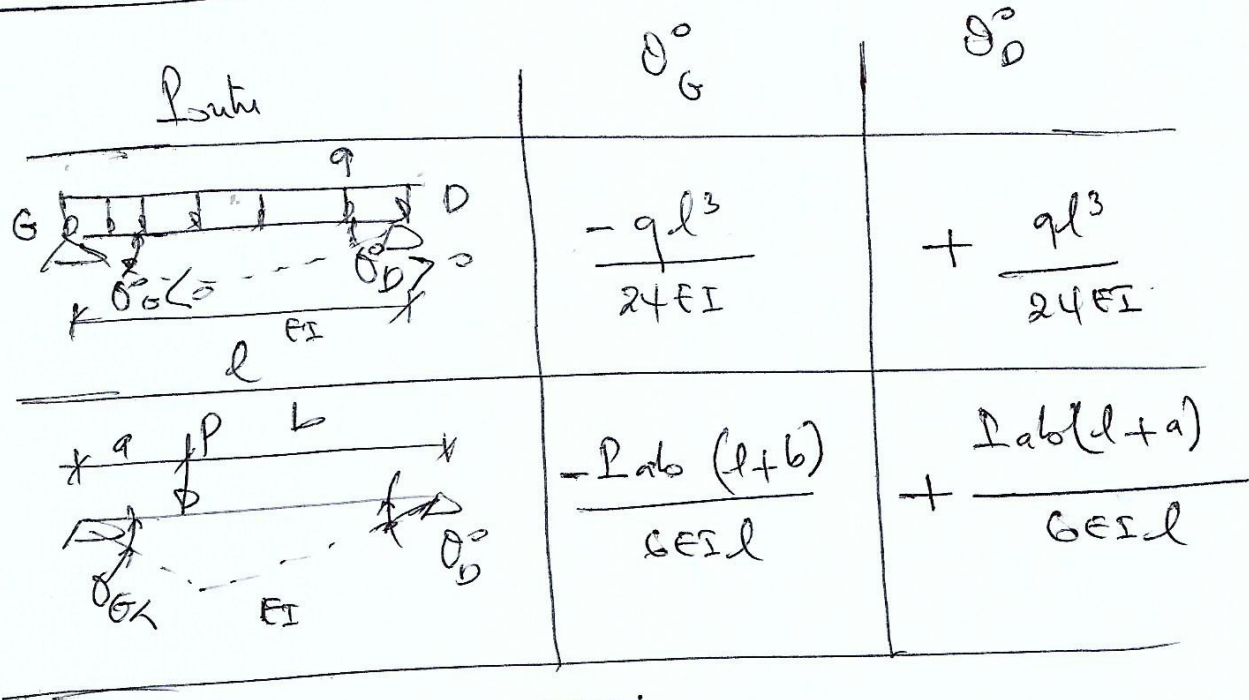 Poutre θ°G θ°D
q
G D
θ°G<0 θ°D>0
EI
l
-ql³/24EI + ql³/24EI
a P b
θG< θ°D
EI
-Pab (l+b)/6EIl + Pab(l+a)/6EIl